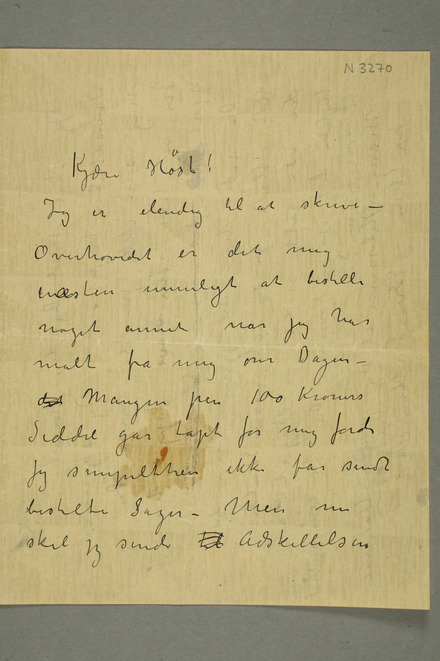 N 3270
Kjære Höst!
Jeg er elendig til at skrive –
Overhovedet er det mig
næsten umuligt at bestille
noget annet når jeg har
malt fra mig om Dagen –
Mangen pen 100 Kroners
Seddel går tapt for mig fordi
jeg simpelthen ikke får sendt
bestilte Sager – Men nu
skal jeg sende Adskillelsen